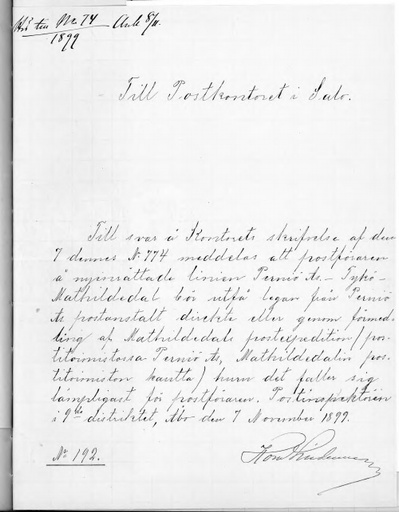 No 74
1899
Ank 8/11.
Till Postkontoret i Salo.
Till svar å Kontorets skrifvelse af den
7 dennes No 774 meddelas att postföraren
å nyinrättade linien Perniö As. - Tykö -
Mathildedal bör utfå legan från Perniö
As postanstalt direkte eller genom förmed-
ling af Mathildedals postexpedition (pos-
titoimistossa Perniö As, Mathildedalin pos-
titoimiston kautta) huru det faller sig
lämpligast för postföraren. Postinspektören
i 9de distriktet, Åbo den 7 November 1899.
No 192.